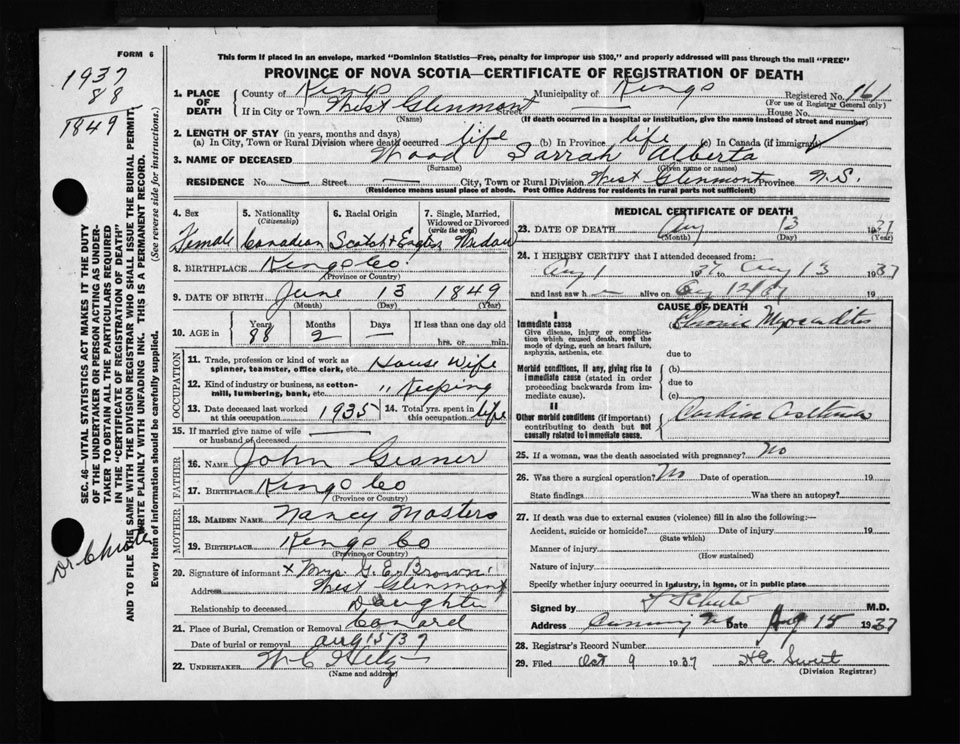 FORM 6
This form if placed in an envelope, marked "Dominion Statistics—Free, penalty for improper use $300," and properly addressed will pass through the mail "FREE"
PROVINCE OF NOVA SCOTIA—CERTIFICATE OF REGISTRATION OF DEATH
1937
88
1849
1. PLACE OF DEATH County of Kings Municipality of Kings Registered No. 161
(For use of Registrar General only)
If in City or Town West Glenmont Street — House No.
(Name) (If death occurred in a hospital or institution, give the name instead of street and number)
2. LENGTH OF STAY (in years, months and days)
(a) In City, Town or Rural Division where death occurred life (b) In Province life (c) In Canada (if immigrant)
3. NAME OF DECEASED Wood Sarrah Alberta
(Surname) (Given name or names)
RESIDENCE No. — Street — City, Town or Rural Division West Glenmont Province N.S.
(Residence means usual place of abode. Post Office Address for residents in rural parts not sufficient)
SEC. 46—VITAL STATISTICS ACT MAKES IT THE DUTY
OF THE UNDERTAKER OR PERSON ACTING AS UNDER-
TAKER TO OBTAIN ALL THE PARTICULARS REQUIRED
IN THE "CERTIFICATE OF REGISTRATION OF DEATH"
AND TO FILE THE SAME WITH THE DIVISION REGISTRAR WHO SHALL ISSUE THE BURIAL PERMIT.
WRITE PLAINLY WITH UNFADING INK. THIS IS A PERMANENT RECORD.
Every item of information should be carefully supplied. (See reverse side for instructions.)
4. Sex 5. Nationality 6. Racial Origin 7. Single, Married,
(Citizenship) Widowed or Divorced
(write the word)
Female Canadian Scotch & English Widow
8. BIRTHPLACE Kings Co
(Province or Country)
9. DATE OF BIRTH June 13 1849
(Month) (Day) (Year)
10. AGE in Years Months Days If less than one day old
88 2 — hrs. or min.
OCCUPATION
11. Trade, profession or kind of work as House Wife
spinner, teamster, office clerk, etc.
12. Kind of industry or business, as cotton- " Keeping
mill, lumbering, bank, etc.
13. Date deceased last worked at this occupation 1935 14. Total yrs. spent in this occupation life
15. If married give name of wife or husband of deceased —
FATHER
16. NAME John Gesner
17. BIRTHPLACE Kings Co
(Province or Country)
MOTHER
18. MAIDEN NAME Nancy Masters
19. BIRTHPLACE Kings Co
(Province or Country)
20. Signature of informant x Mrs. G. E. Brown
Address West Glenmont
Relationship to deceased Daughter
21. Place of Burial, Cremation or Removal Canard
Date of burial or removal Aug 15/37
22. UNDERTAKER
(Name and address)
MEDICAL CERTIFICATE OF DEATH
23. DATE OF DEATH Aug 13 1937
(Month) (Day) (Year)
24. I HEREBY CERTIFY that I attended deceased from:
Aug 1 1937 to Aug 13 1937
and last saw h alive on Aug 12/37 19
CAUSE OF DEATH
I
Immediate cause Chronic Myocarditis
Give disease, injury or complica-
tion which caused death, not the
mode of dying, such as heart failure,
asphyxia, asthenia, etc.
due to
Morbid conditions, if any, giving rise to
immediate cause (stated in order
proceeding backwards from im-
mediate cause).
(b)
due to
(c)
II
Other morbid conditions (if important)
contributing to death but not
causally related to immediate cause.
Cardiac
25. If a woman, was the death associated with pregnancy? No
26. Was there a surgical operation? No Date of operation 19
State findings Was there an autopsy?
27. If death was due to external causes (violence) fill in also the following:—
Accident, suicide or homicide? Date of injury 19
(State which)
Manner of injury
(How sustained)
Nature of injury
Specify whether injury occurred in industry, in home, or in public place
Signed by M.D.
Address Canning NS Date Aug 15 1937
28. Registrar's Record Number
29. Filed Oct 9 1937
(Division Registrar)